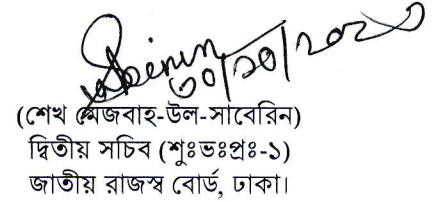 ৩০/১০/২০২৩
(শেখ মেজবাহ-উল-সাবেরিন)
দ্বিতীয় সচিব (শুঃভঃপ্রঃ-১)
জাতীয় রাজস্ব বোর্ড, ঢাকা।